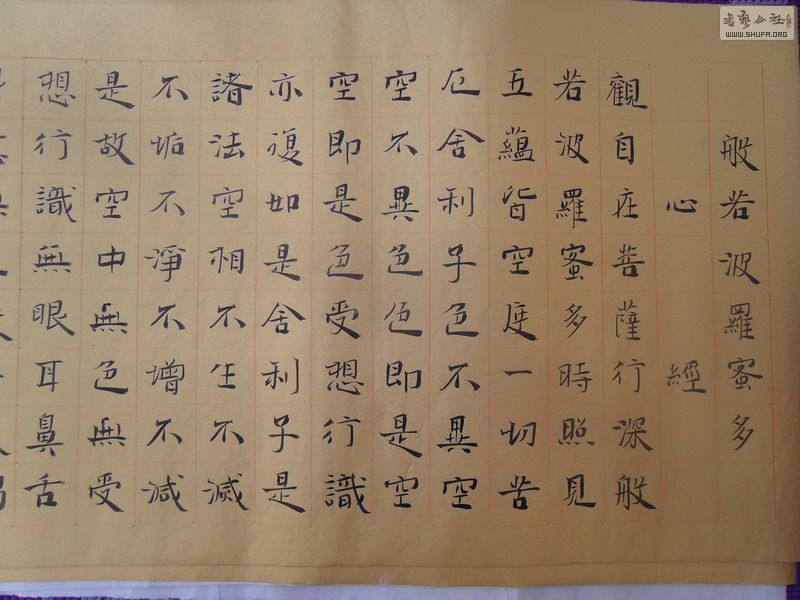 般若波羅蜜多
心經
觀自在菩薩行深般
若波羅蜜多時照見
五蘊皆空度一切苦
厄舍利子色不異空
空不異色色即是空
空即是色受想行識
亦復如是舍利子是
諸法空相不生不滅
不垢不淨不增不減
是故空中無色無受
想行識無眼耳鼻舌
書藝公社
WWW.SHUFA.ORG